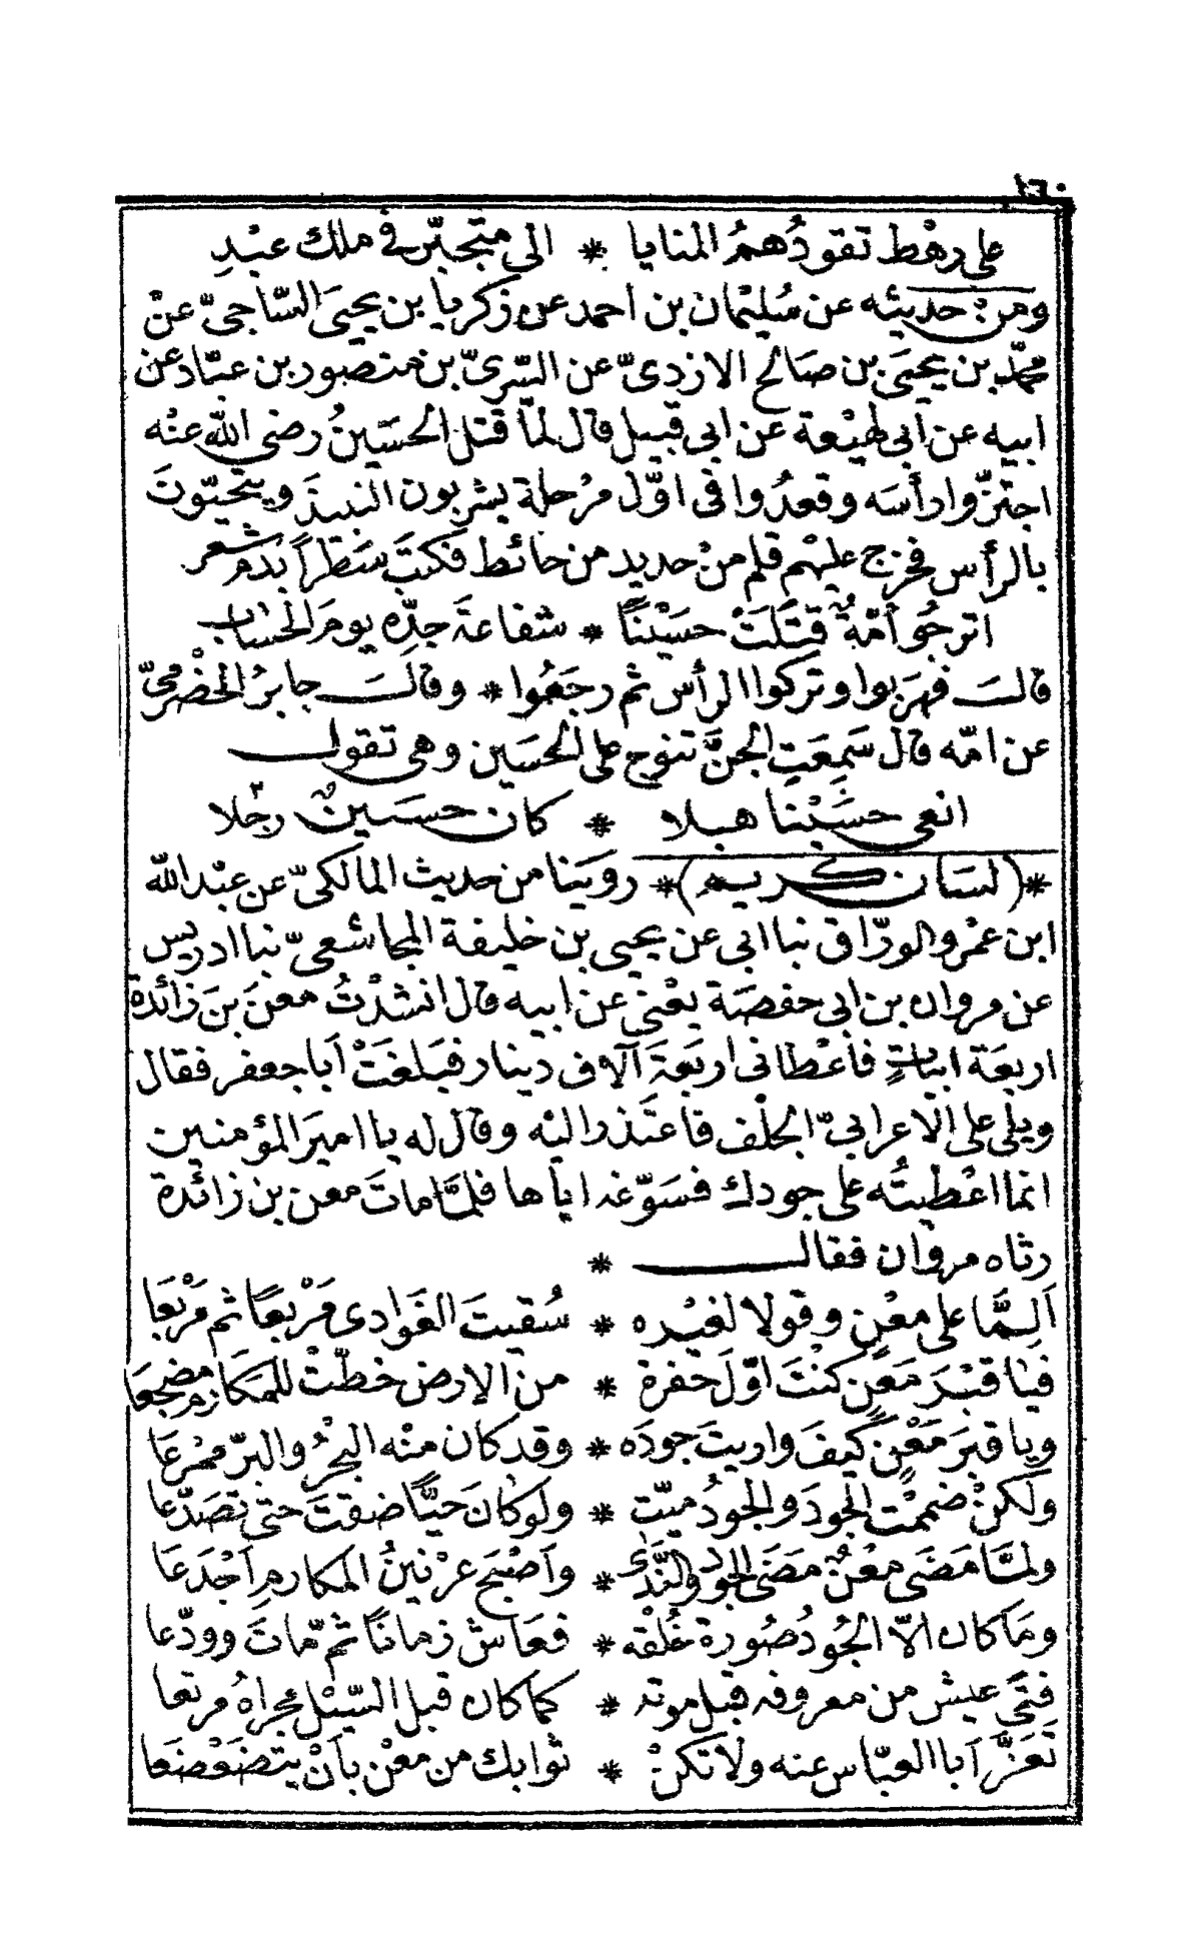 ١٦٠
على رهْط تقودُهمُ المنايا * الى متجبّر فى ملك عبْدِ
ومن حديثه عن سُليْمان بن احمد عن زكريا بن يحيىَ السّاجىّ عنْ
محمّد بن يحيىَ بن صَالح الازدىّ عن السّرىّ بن منصور بن عبّاد عن
ابيه عن ابى لهيْعة عن ابى قبيل قال لمّا قتل الحسَينُ رضى الله عنْه
اجتزّوا رأسَه وقعدُوا فى اوّل مرْحلة يشربون النبيذَ ويتحيّونَ
بالرأس فخرج عليهْم قلم منْ حديد من حائط فكتبَ سَطراً بدم شعر
اترجُو أمّةٌ قتَلَتْ حسَيْنًا * شفاعةَ جدّه يومَ الحسَاب
قالَ فهرَبوا وتركوا الرأس ثم رجَعُوا * وقالَ جابرُ الحضْرمىّ
عن امّه قال سَمِعَتِ الجنَّ تنوح على الحسَين وهى تقول
انعى حسَيْنا هبلا * كان حسَينٌ رجُلا
*(لسَان كريم)* رويَنا من حديث المالكىّ عن عبْد الله
ابن عمْرو الورّاق نبا ابى عن يحيى بن خليفة المجاشعىّ نبا ادريس
عن مروان بن ابى حفصَة يعْنى عن ابيه قال انشدْتُ معْنَ بنَ زائدة
اربعَة ابياتٍ فأعْطانى اربَعةَ آلاف دينار فبَلغَتْ أبا جعفر فقال
ويلى على الاعرابىّ الجلْف فاعتَذر اليْه وقال له يا اميرَ المؤمنين
انما اعْطيتُه على جودك فسَوّغه اياها فلمّا ماتَ معن بن زائدة
رثاه مروان فقال *
اَلِمَّا على معْنٍ وقولا لغيْره * سُقيتَ الغَوادى مَرْبعًا ثم مَرْبعَا
فيَا قبْرَ مَعنٍ كنْتَ اوّلَ حفرة * من الارض خطّتْ للمكَارم مضجعَا
ويا قبرَ مَعْنٍ كيفَ واريتَ جودَه * وقد كان منْه البحْرُ والبرّ مترعَا
ولكنْ ضممْتَ الجودَ والجودُ ميّت * ولو كانَ حيًّا ضقتَ حتى تصَدّعا
ولمّا مَضَى معْنٌ مَضَى الجودُ والنّدَى * وأصْبَح عرْنينُ المكارم أجْدَعَا
ومَا كان الاّ الجُودُ صُورة خُلْقه * فعَاشَ زمانًا ثمّ ماتَ وودّعا
فتىً عيش من معروفه قبل موته * كما كان قبل السّيْل مجراهُ مرتعا
تَعَزَّ أبا العبّاس عنه ولا تكنْ * ثوابك من معْن بأنْ يتضَعْضعَا